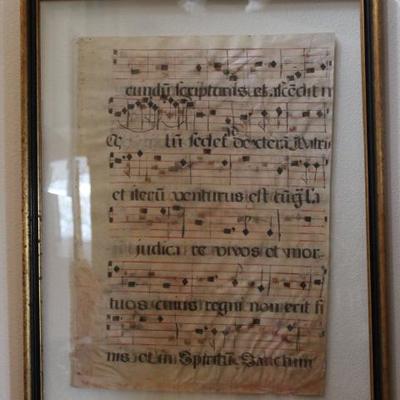 cundũ scripturas et ascẽdit in
Cę lũ sedet ad dexterã Patri
et iterũ venturus est cũ gl'a
judica re vivos et mor-
tuos cuius regni non erit fi
nis et in Spiritũ Sanctum